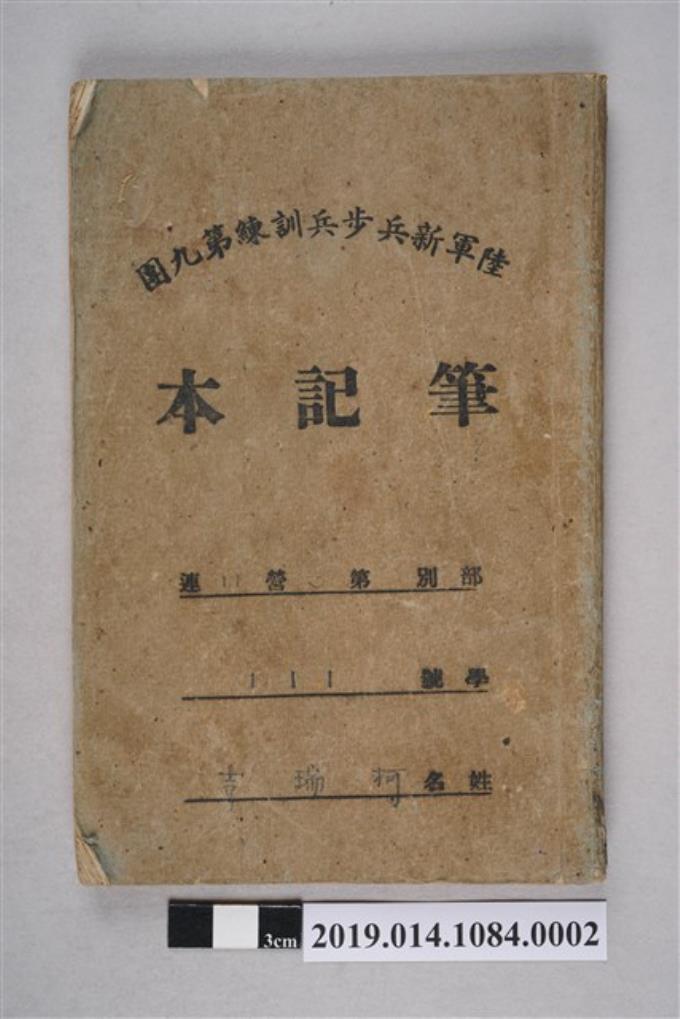 陸軍新兵步兵訓練第九團
筆記本
部別 第 營 連
學號 111
姓名 柯瑞
3cm
2019.014.1084.0002